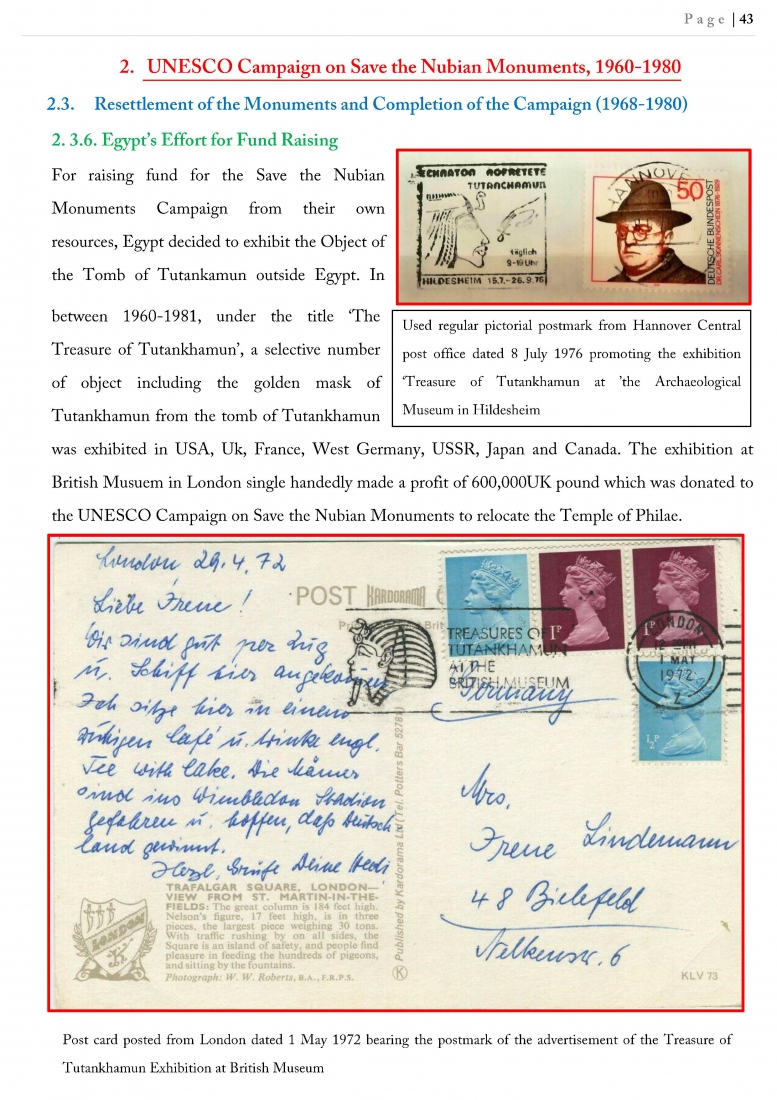 Page | 43
2. UNESCO Campaign on Save the Nubian Monuments, 1960-1980
2.3. Resettlement of the Monuments and Completion of the Campaign (1968-1980)
2. 3.6. Egypt's Effort for Fund Raising
For raising fund for the Save the Nubian
Monuments Campaign from their own
resources, Egypt decided to exhibit the Object of
the Tomb of Tutankamun outside Egypt. In
between 1960-1981, under the title 'The
Treasure of Tutankhamun', a selective number
of object including the golden mask of
Tutankhamun from the tomb of Tutankhamun
ECHNATON NOFRETETE
TUTANCHAMUN
täglich
9-19 Uhr
HILDESHEIM 15.7.-26.9.76
HANNOVER
50
DEUTSCHE BUNDESPOST
DR. CARL SONNENSCHEIN 1876-1929
Used regular pictorial postmark from Hannover Central
post office dated 8 July 1976 promoting the exhibition
'Treasure of Tutankhamun at 'the Archaeological
Museum in Hildesheim
was exhibited in USA, Uk, France, West Germany, USSR, Japan and Canada. The exhibition at
British Musuem in London single handedly made a profit of 600,000UK pound which was donated to
the UNESCO Campaign on Save the Nubian Monuments to relocate the Temple of Philae.
London 29.4.72
Liebe Irene!
Wir sind gut per Zug
u. Schiff hier angekommen
Ich sitze hier in einem
ruhigen Café u. trinke engl.
Tee with Cake. Die Männer
sind ins Wimbledon Stadion
gefahren u. hoffen, daß Deutsch
land gewinnt.
Herzl. Grüße Deine Hedi
POST KARDORAMA
TREASURES OF
TUTANKHAMUN
AT THE
BRITISH MUSEUM
1P
1P
LONDON
1 MAY
1972
Z
½P
Germany
Mrs.
Irene Lindemann
48 Bielefeld
Nelkenstr. 6
Published by Kardorama Ltd (Tel. Potters Bar 5278
LONDON
TRAFALGAR SQUARE, LONDON—
VIEW FROM ST. MARTIN-IN-THE-
FIELDS: The great column is 184 feet high.
Nelson's figure, 17 feet high, is in three
pieces, the largest piece weighing 30 tons.
With traffic rushing by on all sides, the
Square is an island of safety, and people find
pleasure in feeding the hundreds of pigeons,
and sitting by the fountains.
Photograph: W. W. Roberts, B.A., F.R.P.S.
K
KLV 73
Post card posted from London dated 1 May 1972 bearing the postmark of the advertisement of the Treasure of
Tutankhamun Exhibition at British Museum